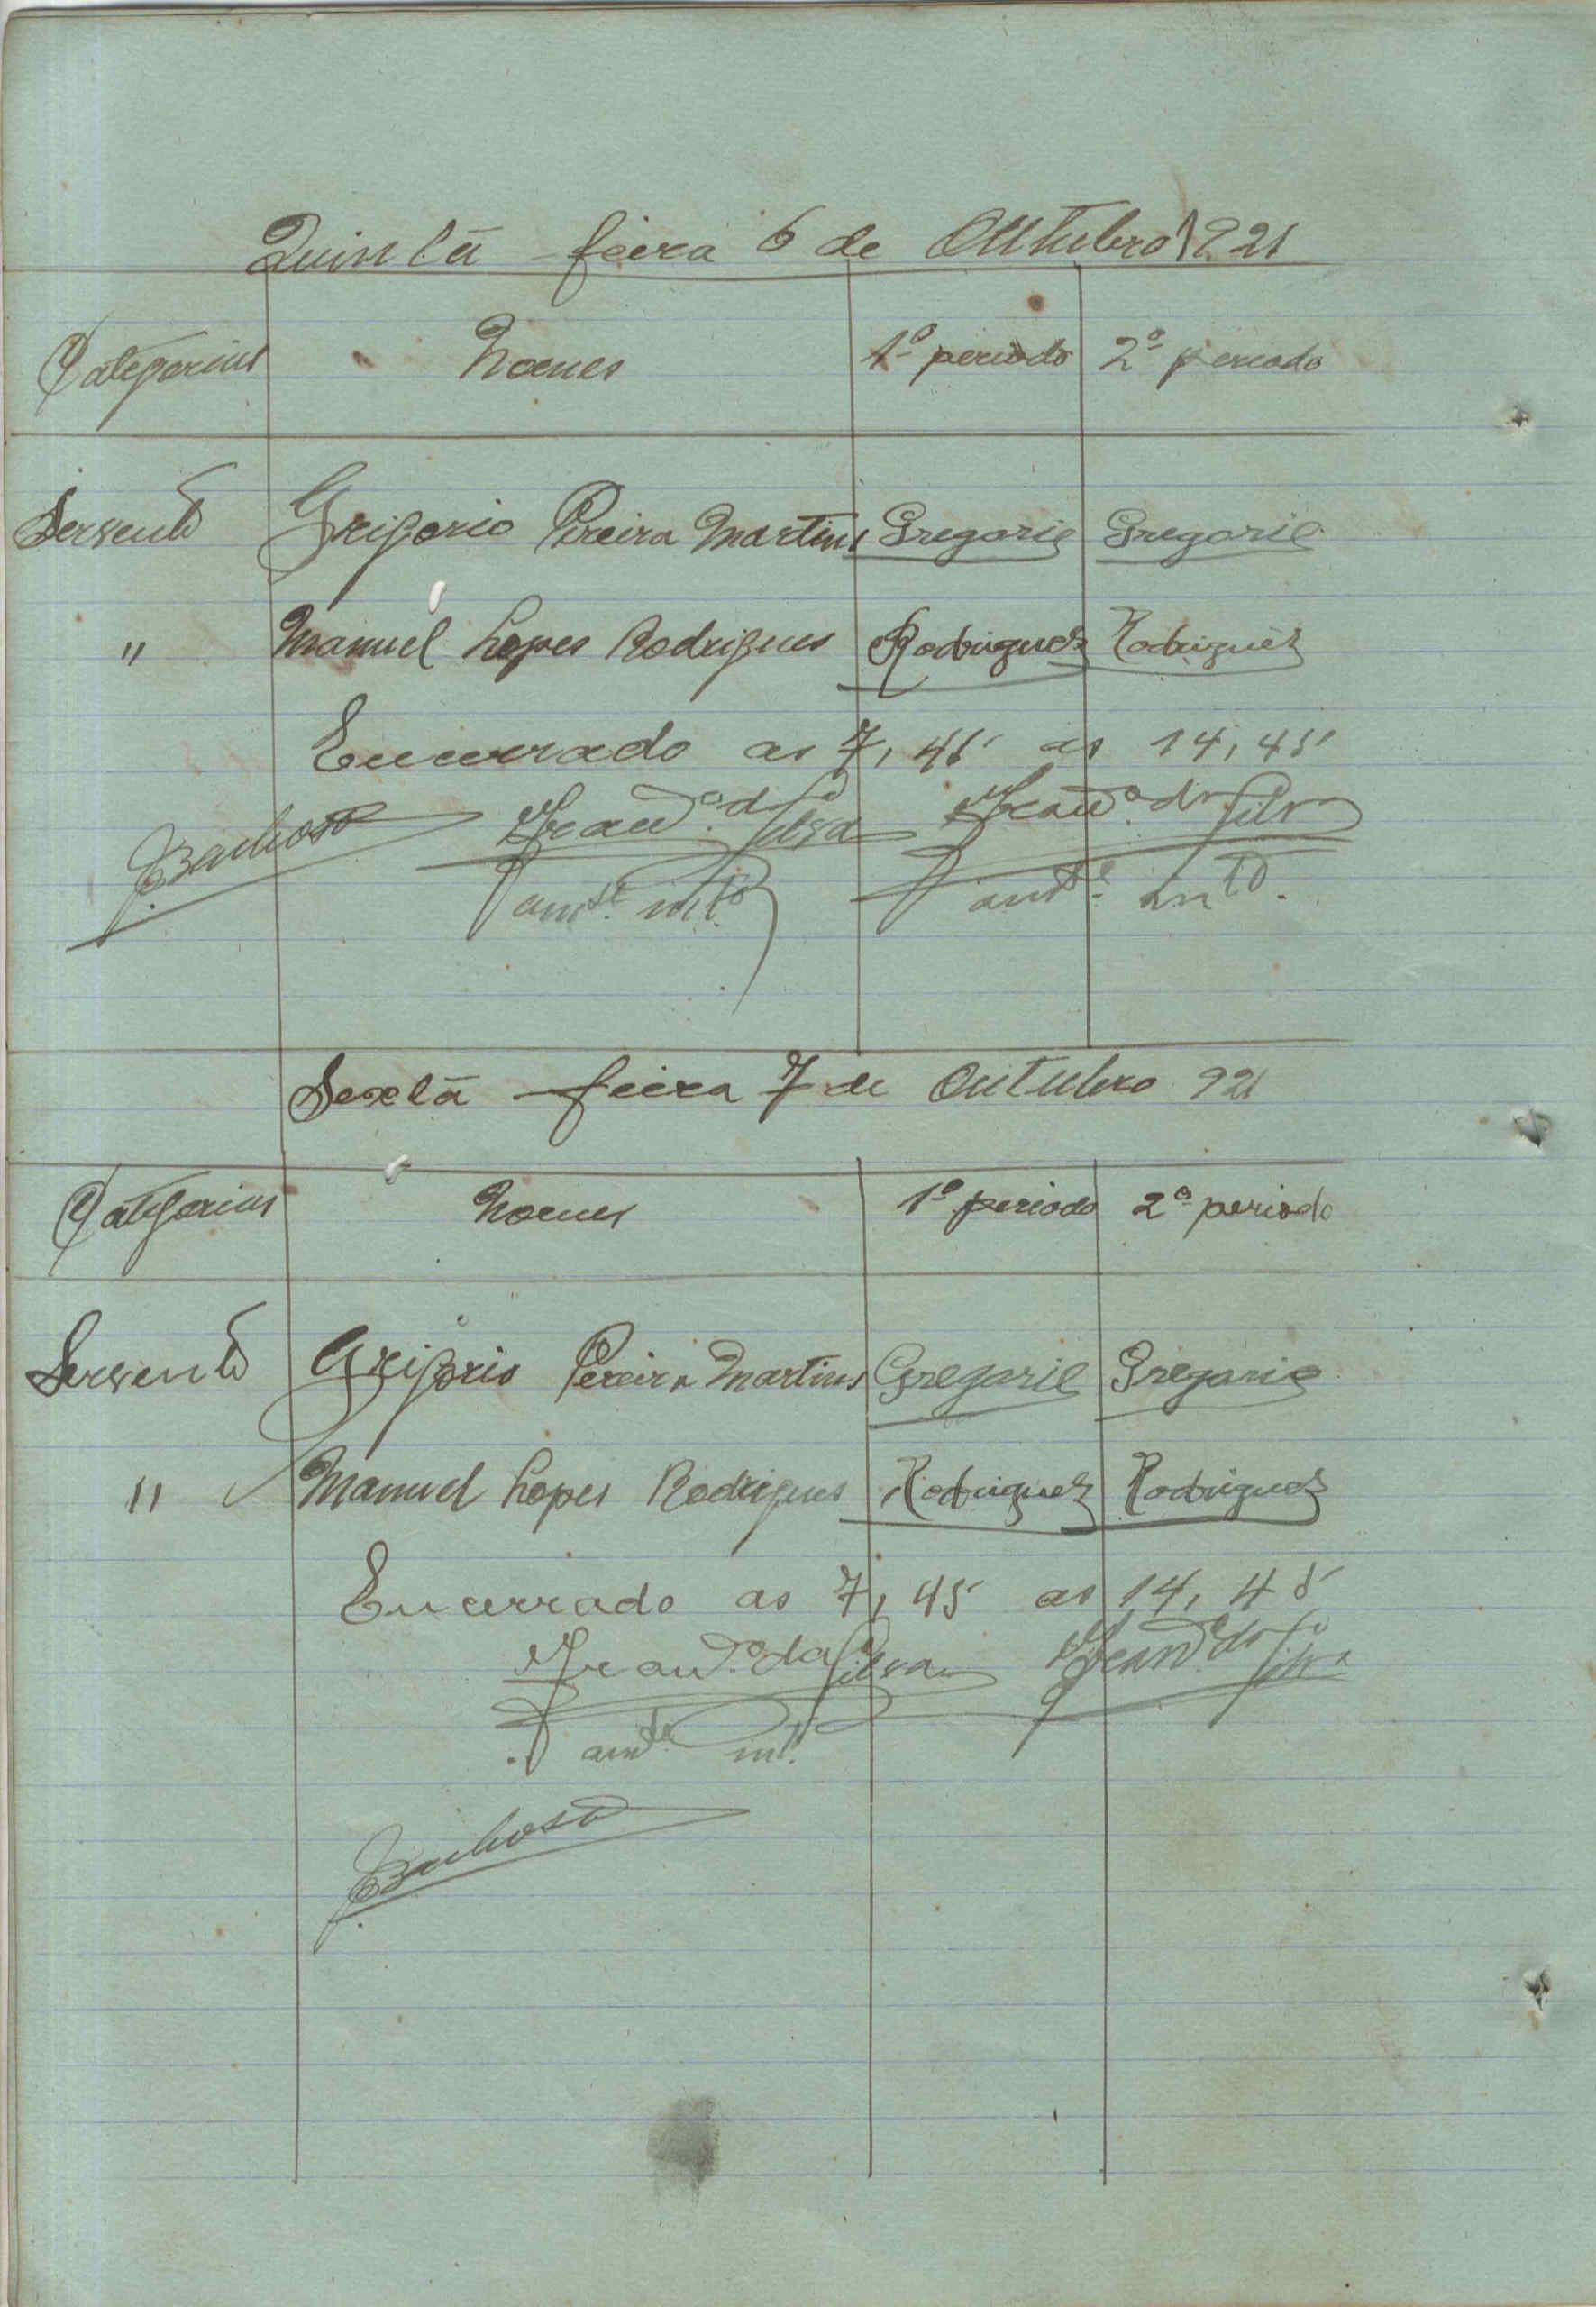 Quinta feira 6 de Outubro 1921
Categorias Nomes 1º periodo 2º periodo
Servente Grigorio Pereira Martins Gregorio Gregorio
" Manuel Lopes Rodrigues Rodriguez Rodriguez
Encerrado as 7,45 as 14,45
Barbosa Franco. da Silva Franco. da Silva
Sexta feira 7 de Outubro 921
Categorias Nomes 1º periodo 2º periodo
Servente Grigorio Pereira Martins Gregorio Gregorio
" Manuel Lopes Rodrigues Rodriguez Rodriguez
Encerrado as 7,45 as 14,45
da Silva da Silva
Barbosa